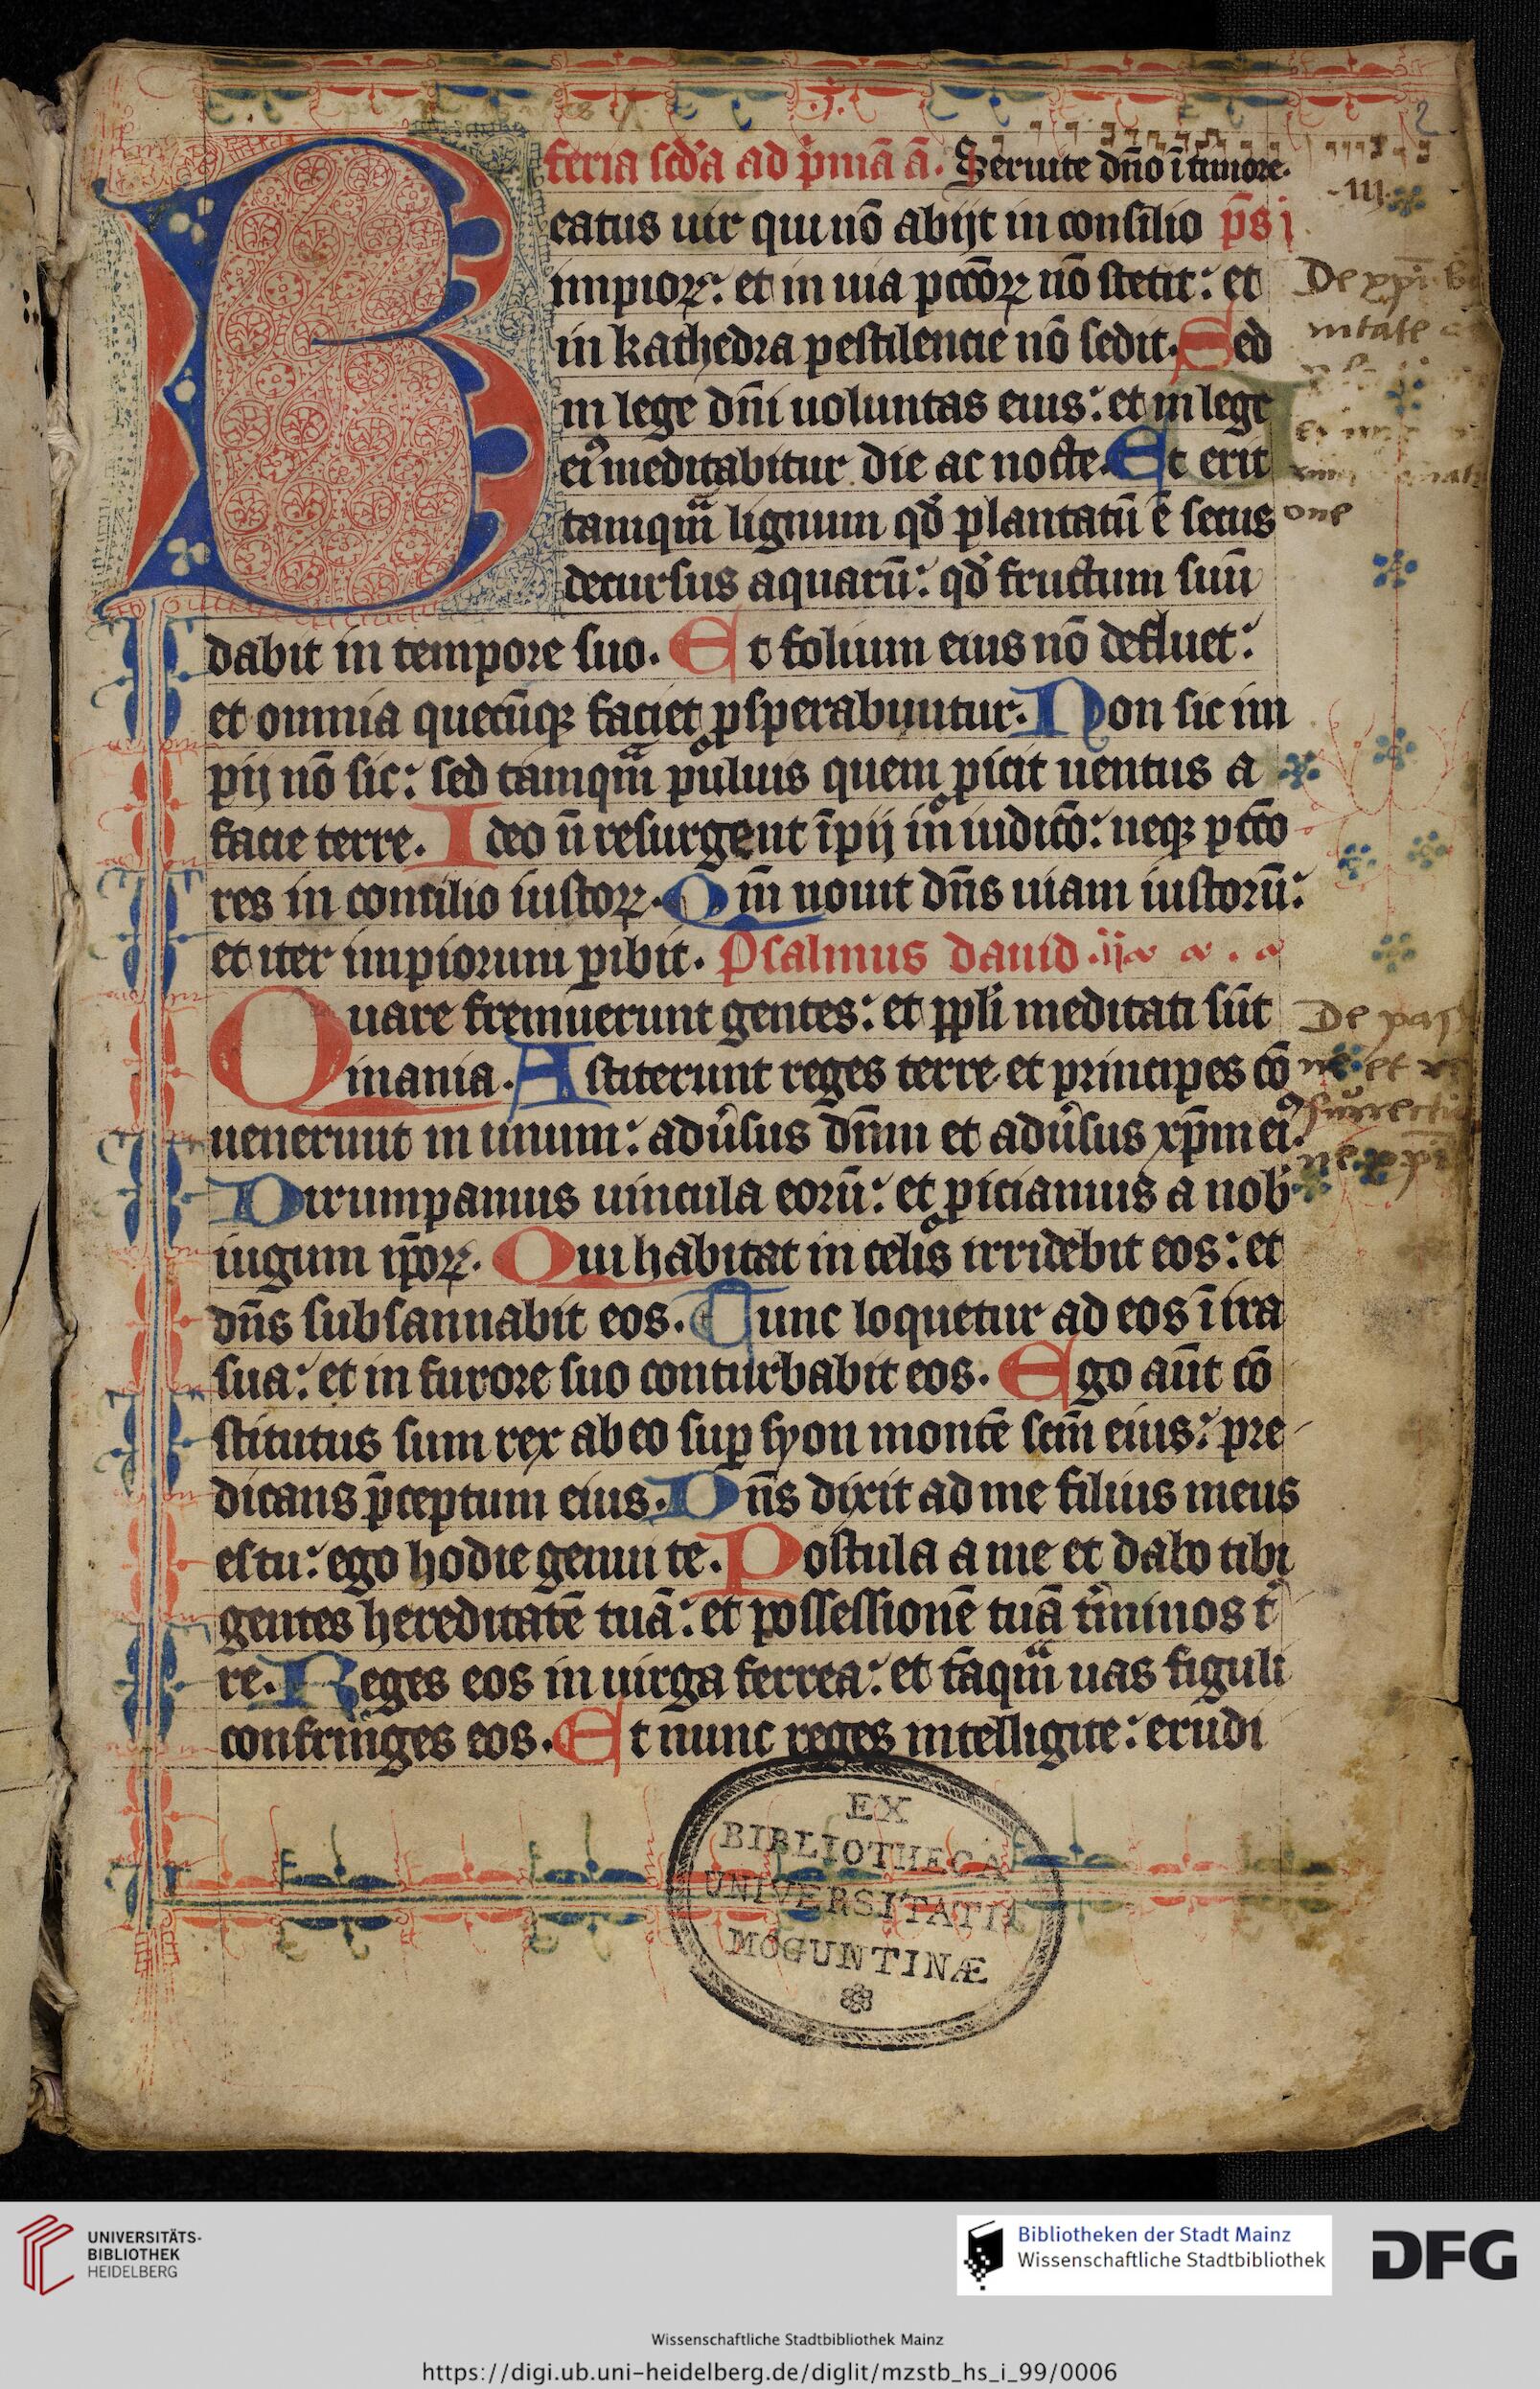 .j.
2
feria scd'a ad p'mā ā. Seruite dño ī timore.
.iij.
Beatus uir qui nō abijt in consilio p̄s j
impioꝝ: et in uia pctōꝝ nō stetit: et
in kathedra pestilencie nō sedit. Sed
in lege dñi uoluntas eius: et in lege
eiꝰ meditabitur die ac nocte. Et erit
tamqᵃm lignum qd' plantatū ē secus
decursus aquarū: qd' fructum suū
dabit in tempore suo. Et folium eius nō defluet:
et omnia quecūqꝫ faciet ꝓsperabuntur. Non sic im
pij nō sic: sed tamqᵃm puluis quem ꝓicit uentus a
facie terre. Ideo ñ resurgent īpij in iudicō: neqꝫ pctō
res in consilio iustoꝝ. Qm̄ nouit dñs uiam iustorū:
et iter impiorum ꝑibit. Psalmus dauid .ij.
Quare fremuerunt gentes: et ppli meditati sūt
inania. Astiterunt reges terre et principes cō
uenerunt in unum: adu'sus dñm et adu'sus xp̄m eiꝰ.
Dirumpamus uincula eorū: et ꝓiciamus a nob'
iugum ip̄oꝝ. Qui habitat in celis irridebit eos: et
dñs subsannabit eos. Tunc loquetur ad eos ī ira
sua: et in furore suo conturbabit eos. Ego aūt cō
stitutus sum rex ab eo suꝑ syon montē scm̄ eius: pre
dicans p̄ceptum eius. Dñs dixit ad me filius meus
es tu: ego hodie genui te. Postula a me et dabo tibi
gentes hereditatē tuā: et possessionē tuā t'minos t'
re. Reges eos in uirga ferrea: et tāqᵃm uas figuli
confringes eos. Et nunc reges intelligite: erudi
De xp̄i
De pas
ne et re
surrectio
ne xp̄i
EX
BIBLIOTHECA
UNIVERSITATIS
MOGUNTINÆ
UNIVERSITÄTS-
BIBLIOTHEK
HEIDELBERG
Bibliotheken der Stadt Mainz
Wissenschaftliche Stadtbibliothek
DFG
Wissenschaftliche Stadtbibliothek Mainz
https://digi.ub.uni-heidelberg.de/diglit/mzstb_hs_i_99/0006